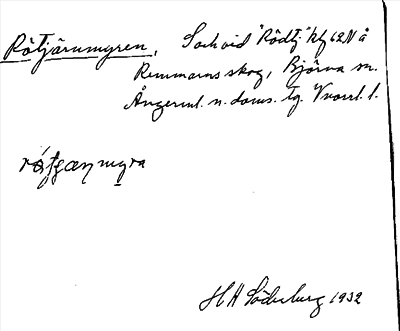 Rötjärnmyren, Sank vid "Rödtj" kbl 62N å
Remmarns skog, Björna sn.
Ångerml. n. doms. tg. Vnorrl. l.
rötjanmyra
H H Söderberg 1932